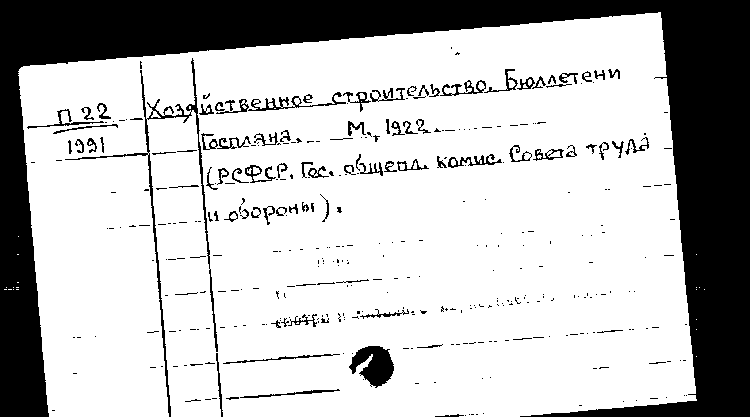 П 22
1991
Хозяйственное строительство. Бюллетени
Госплана. М., 1922.
(РСФСР. Гос. общепл. комис. Совета труда
и обороны).